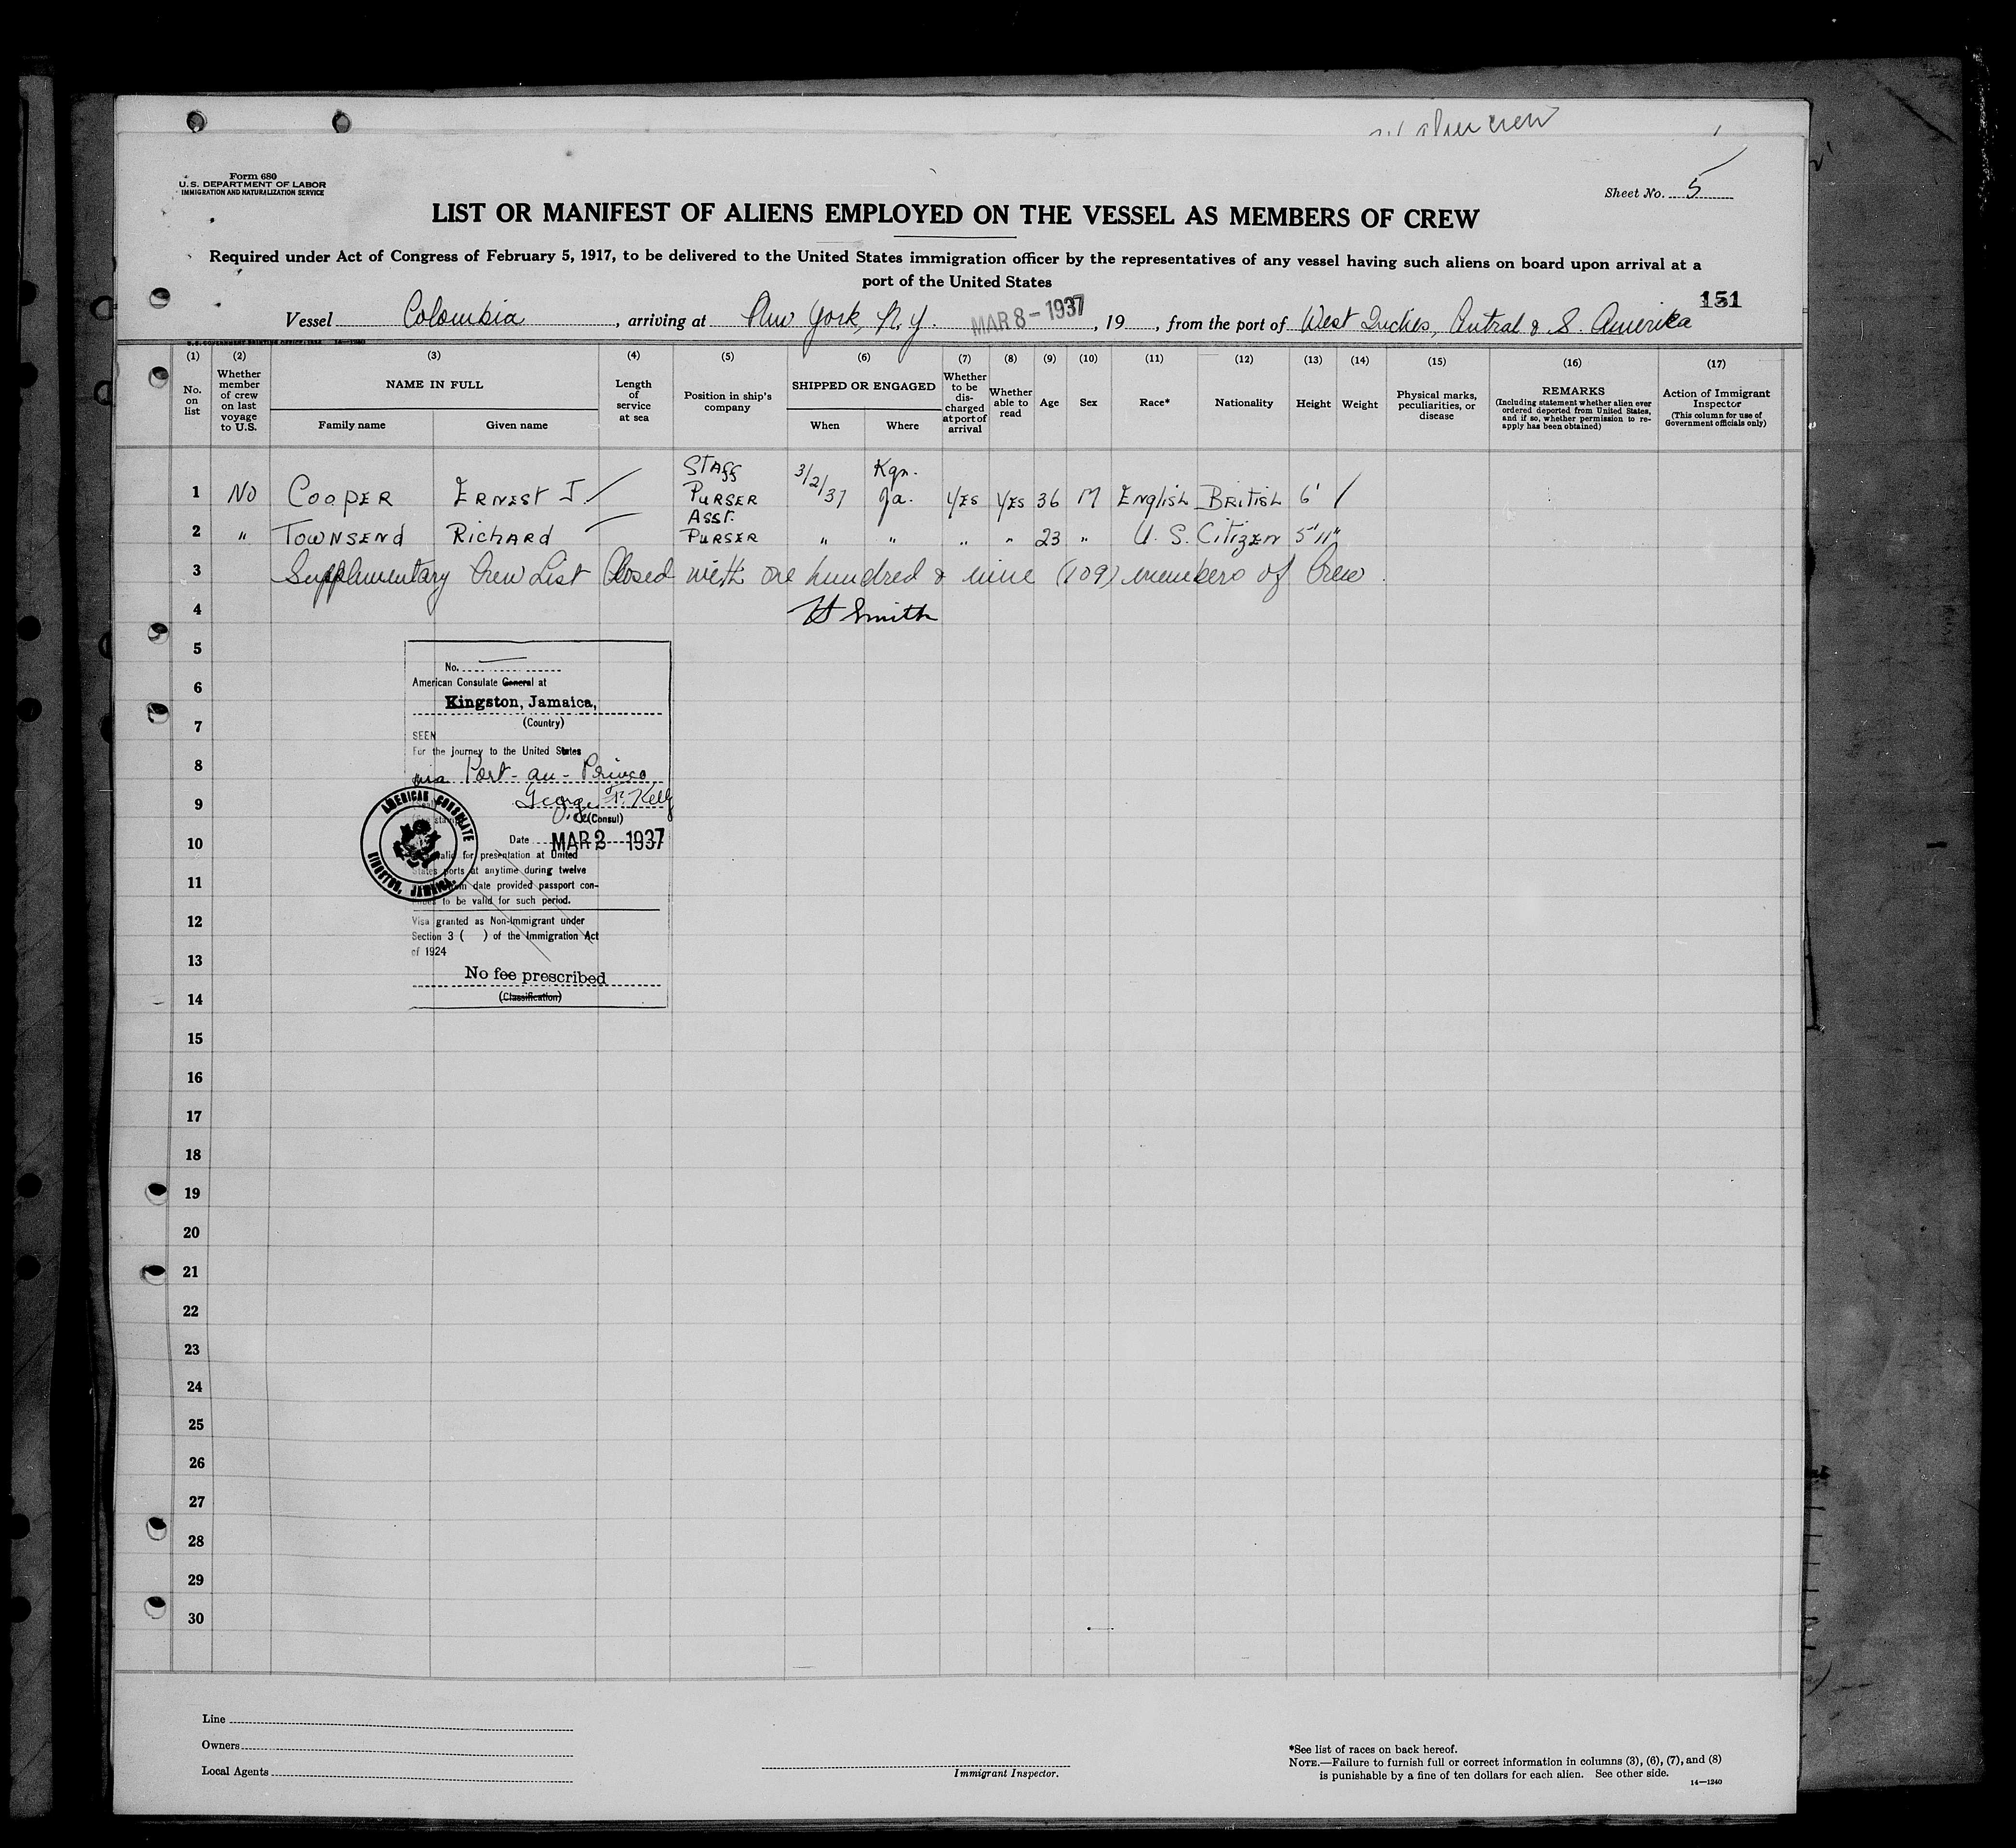 alien crew
Form 680
U.S. DEPARTMENT OF LABOR
IMMIGRATION AND NATURALIZATION SERVICE
Sheet No. 5
LIST OR MANIFEST OF ALIENS EMPLOYED ON THE VESSEL AS MEMBERS OF CREW
Required under Act of Congress of February 5, 1917, to be delivered to the United States immigration officer by the representatives of any vessel having such aliens on board upon arrival at a
port of the United States
151
Vessel Colombia, arriving at New York, N.Y. MAR 8-1937, 19, from the port of West Indies, Central & S. America
(1) (2) (3) (4) (5) (6) (7) (8) (9) (10) (11) (12) (13) (14) (15) (16) (17)
No. on list
Whether member of crew on last voyage to U.S.
NAME IN FULL
Family name Given name
Length of service at sea
Position in ship's company
SHIPPED OR ENGAGED
When Where
Whether to be discharged at port of arrival
Whether able to read
Age
Sex
Race*
Nationality
Height
Weight
Physical marks, peculiarities, or disease
REMARKS
(Including statement whether alien ever ordered deported from United States, and if so, whether permission to re-apply has been obtained)
Action of Immigrant Inspector
(This column for use of Government officials only)
1 No COOPER ERNEST J. STAFF PURSER 3/2/37 Kgn. Ja. YES YES 36 M English British 6'
2 " TOWNSEND RICHARD ASST. PURSER " " " " 23 " U. S. Citizen 5'11"
3 Supplimentary Crew List Closed with one hundred & nine (109) members of Crew.
4 H Smith
5
No.
American Consulate General at
6
Kingston, Jamaica,
7
(Country)
SEEN
For the journey to the United States
8
via Port-au-Prince
9
George F. Kelly
Vice (Consul)
AMERICAN CONSULATE
KINGSTON, JAMAICA.
10
Date MAR 2 1937
Valid for presentation at United
States ports at anytime during twelve
11
date provided passport con-
to be valid for such period.
12
Visa granted as Non-Immigrant under
Section 3 ( ) of the Immigration Act
of 1924
13
No fee prescribed
14
(Classification)
15
16
17
18
19
20
21
22
23
24
25
26
27
28
29
30
Line
Owners
Local Agents
Immigrant Inspector.
*See list of races on back hereof.
NOTE.—Failure to furnish full or correct information in columns (3), (6), (7), and (8)
is punishable by a fine of ten dollars for each alien. See other side.
14—1240